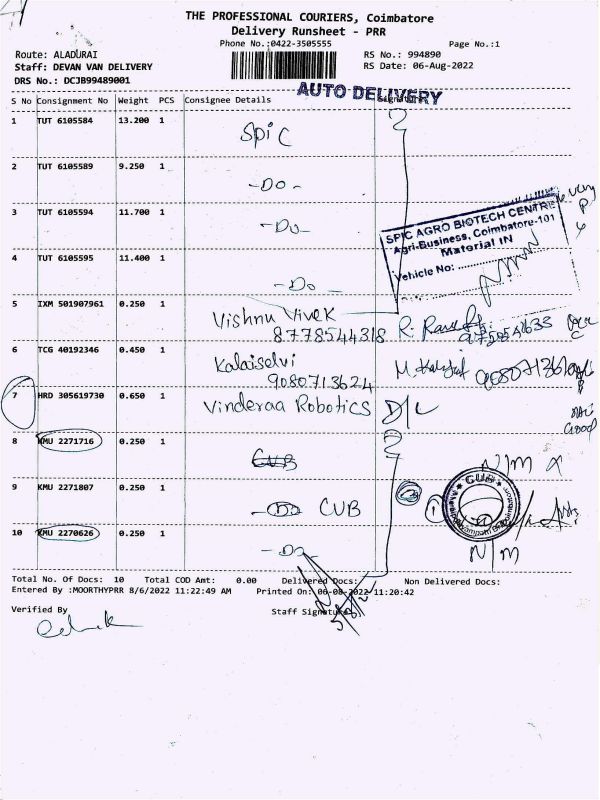 THE PROFESSIONAL COURIERS, Coimbatore
Delivery Runsheet - PRR
Phone No.:0422-3505555
Page No.:1
Route: ALADURAI
RS No.: 994890
Staff: DEVAN VAN DELIVERY
RS Date: 06-Aug-2022
DRS No.: DCJB99489001
AUTO DELIVERY
S No Consignment No Weight PCS Consignee Details Signature
1 TUT 6105584 13.200 1 SPIC
2 TUT 6105589 9.250 1 -Do-
3 TUT 6105594 11.700 1 -Do-
SPIC AGRO BIOTECH CENTRE
Agri-Business, Coimbatore-101
Material IN
Vehicle No:
4 TUT 6105595 11.400 1 -Do-
5 IXM 501907961 0.250 1 Vishnu Vivek
8778544318
6 TCG 40192346 0.450 1 Kalaiselvi
9080713624
7 HRD 305619730 0.650 1 Vinderaa Robotics D/L
8 KMU 2271716 0.250 1 CUB N/M
9 KMU 2271807 0.250 1 -Do- CUB
CUB
10 KMU 2270626 0.250 1 -Do- N/M
Total No. Of Docs: 10 Total COD Amt: 0.00 Delivered Docs: Non Delivered Docs:
Entered By :MOORTHYPRR 8/6/2022 11:22:49 AM Printed On: 06-08-2022 11:20:42
Verified By
Staff Signature